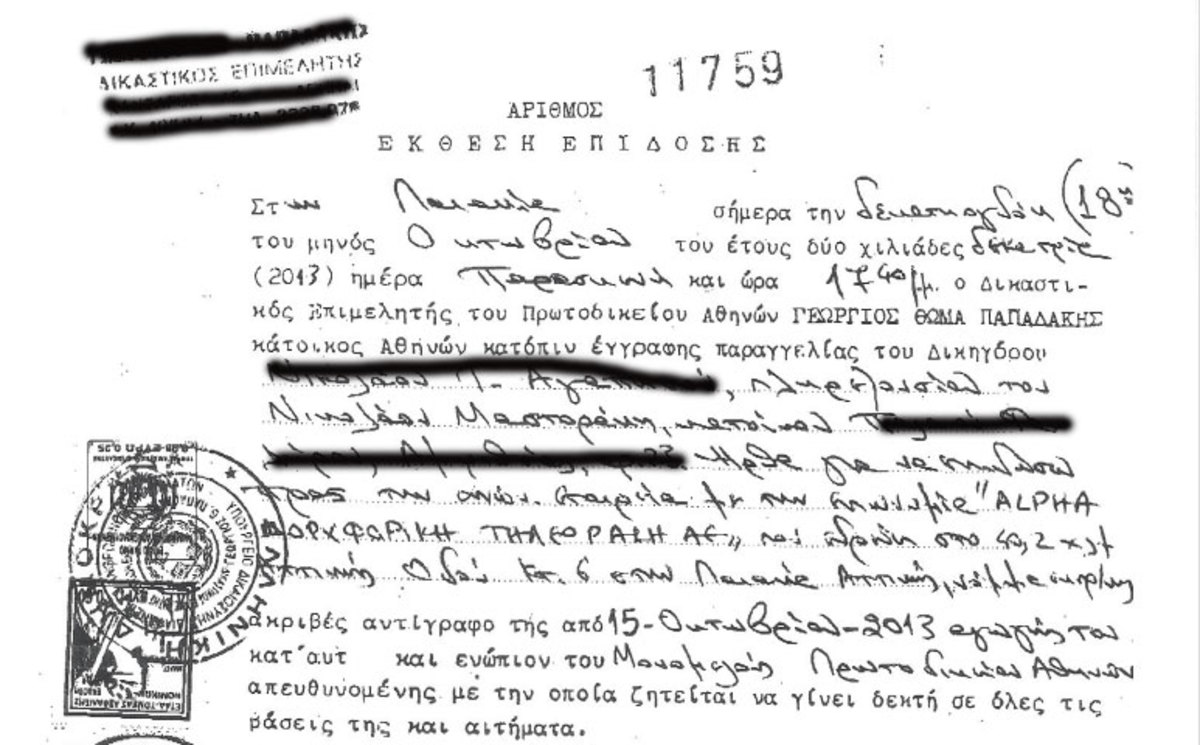 ΔΙΚΑΣΤΙΚΟΣ ΕΠΙΜΕΛΗΤΗΣ
11759
ΑΡΙΘΜΟΣ
ΕΚΘΕΣΗ ΕΠΙΔΟΣΗΣ
Στην Παιανία σήμερα την δεκαοχτώ (18
του μηνός Οκτωβρίου του έτους δύο χιλιάδες δεκατρία
(2013) ημέρα Παρασκευή και ώρα 17 40 μμ. ο Δικαστι-
κός Επιμελητής του Πρωτοδικείου Αθηνών ΓΕΩΡΓΙΟΣ ΘΩΜΑ ΠΑΠΑΔΑΚΗΣ
κάτοικος Αθηνών κατόπιν έγγραφης παραγγελίας του Δικηγόρου
πληρεξουσίου του
Νικολάου Μαστοράκη, κατοίκου
ήρθα για να επιδώσω
προς την εταιρία με την επωνυμία "ALPHA
ΔΟΡΥΦΟΡΙΚΗ ΤΗΛΕΟΡΑΣΗ ΑΕ" που εδρεύει στο 40,2 χλμ
Αττικής Οδού Κτ. 6 στην Παιανία Αττικής, νόμιμα
ακριβές αντίγραφο της από 15-Οκτωβρίου-2013 αγωγής του
κατ' αυτ και ενώπιον του Μονομελούς Πρωτοδικείου Αθηνών
απευθυνομένης με την οποία ζητείται να γίνει δεκτή σε όλες τις
βάσεις της και αιτήματα.